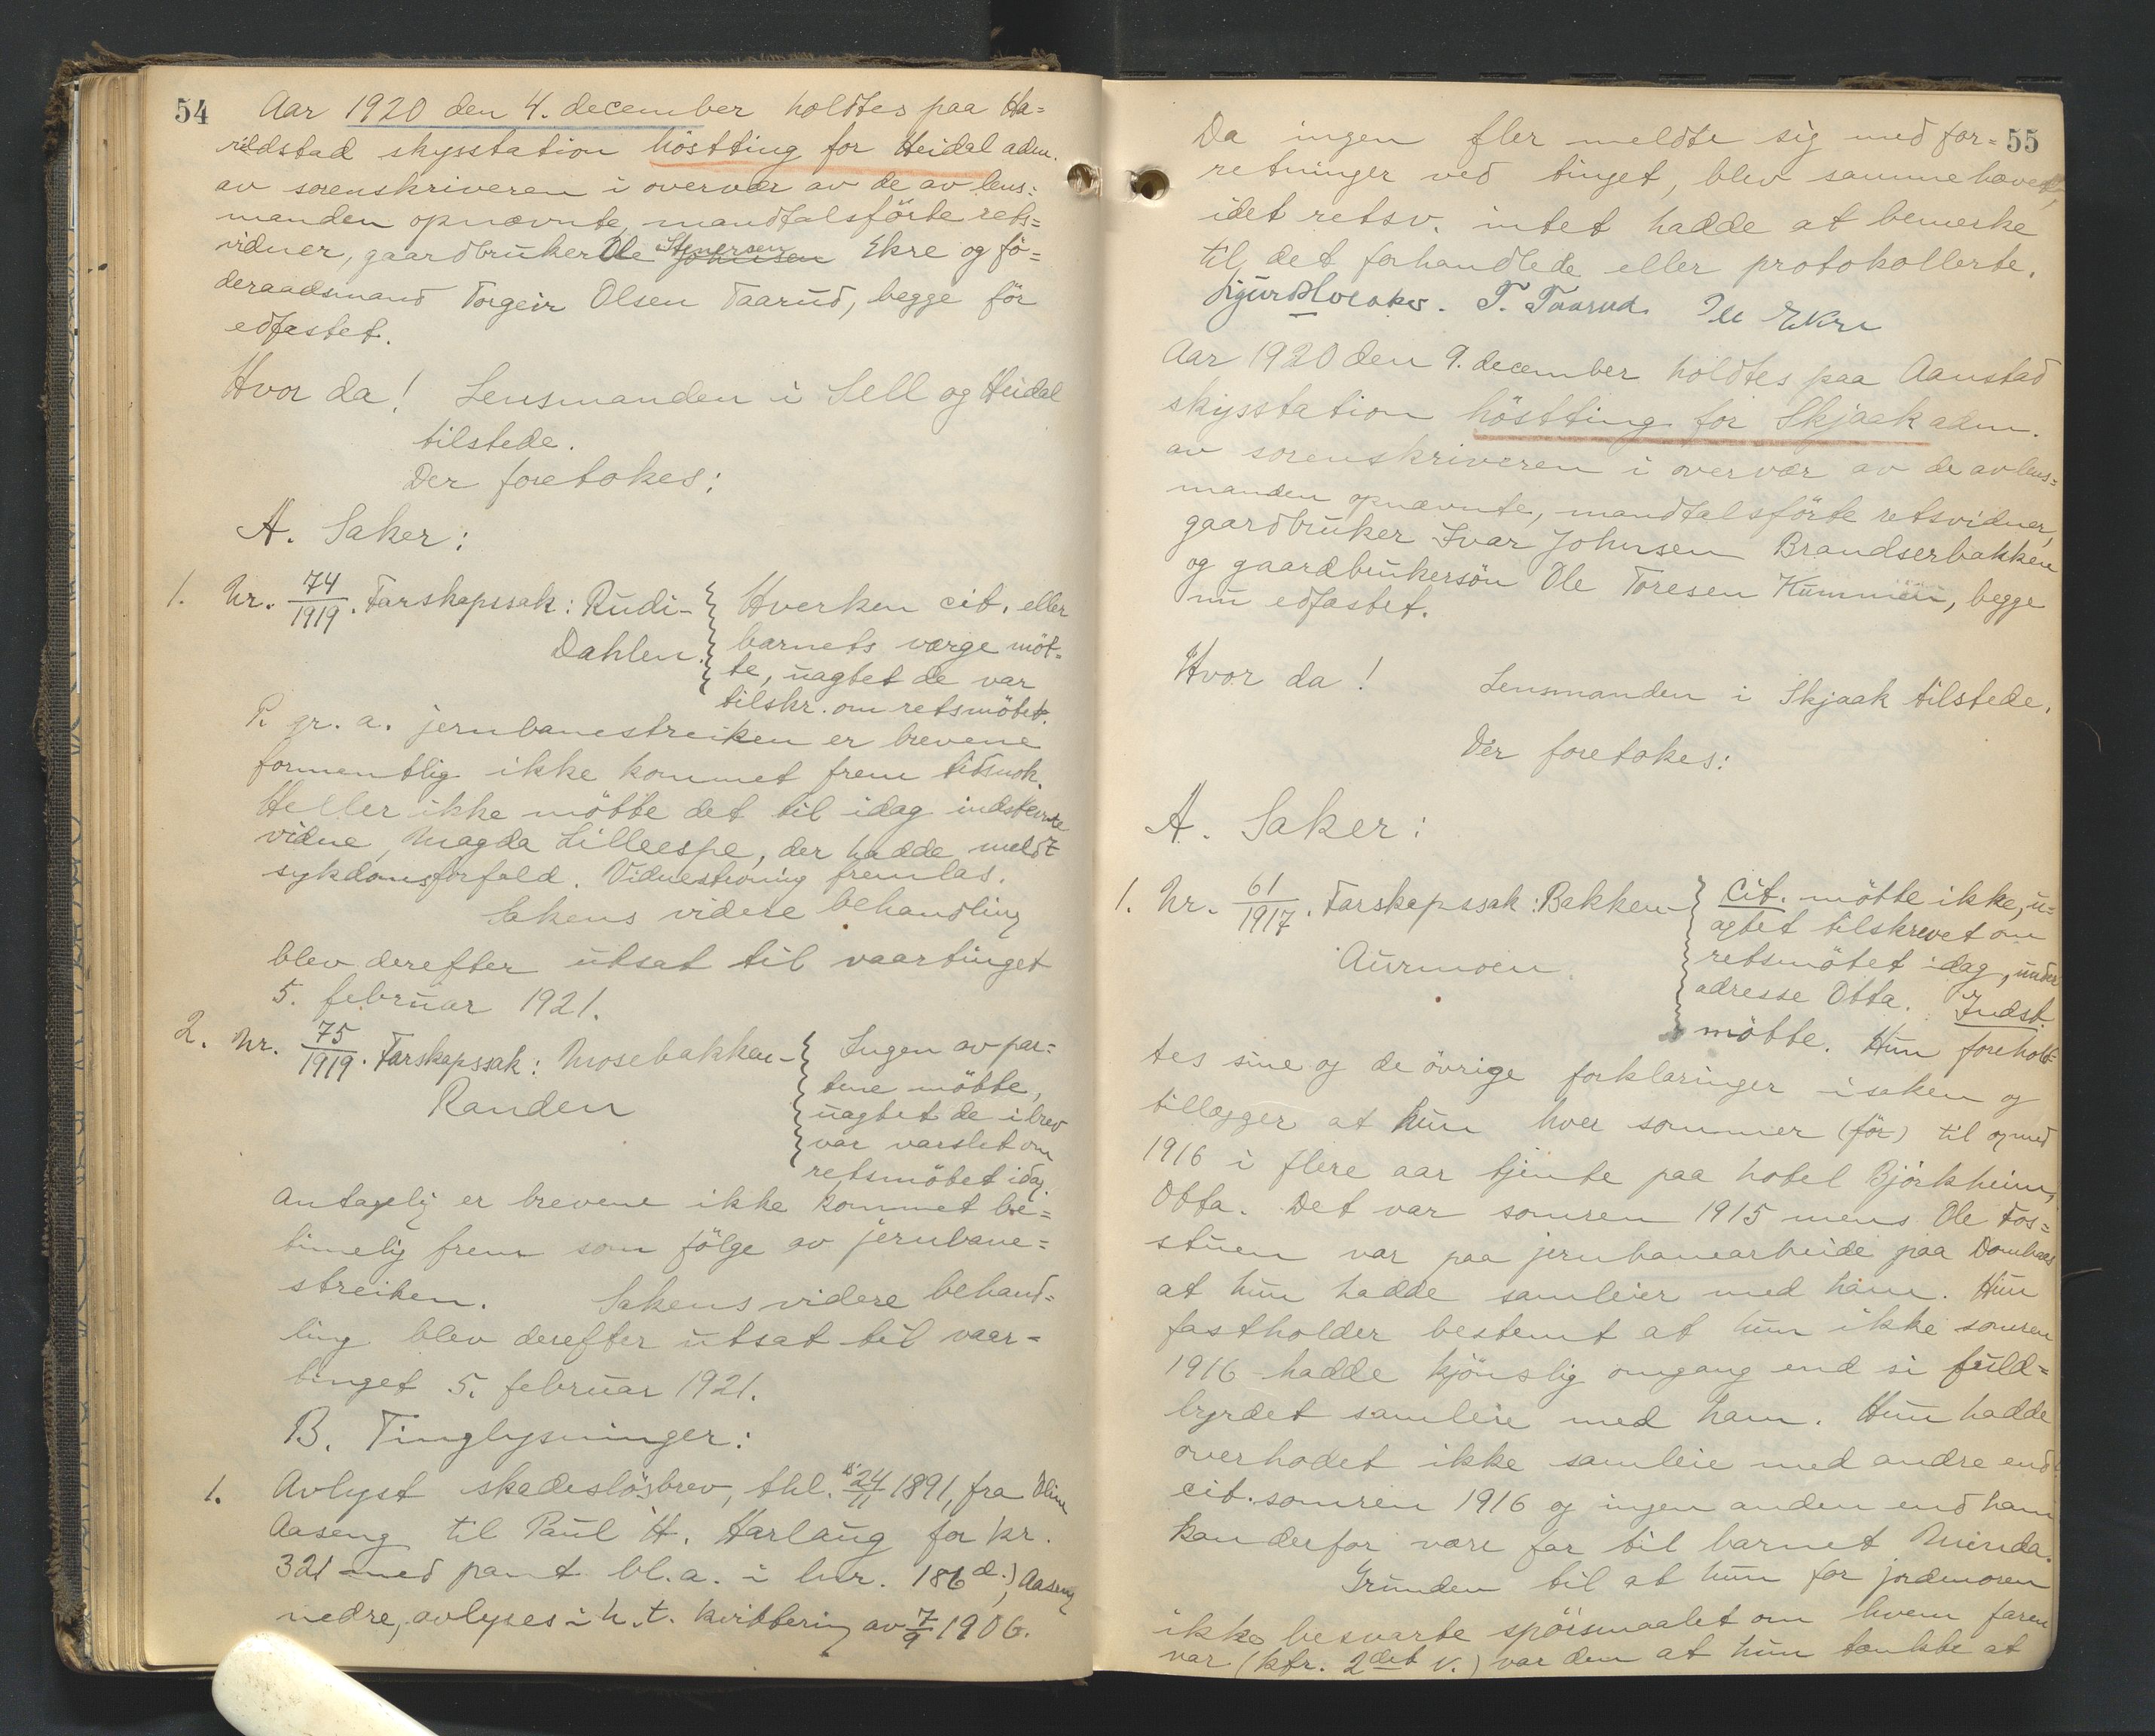 54
Aar 1920 den 4. december holdtes paa Ha=
rildstad skysstation höstting for Heidal adm.
av sorenskriveren i overvær av de av lens=
manden opnævnte, mandtalsförte rets=
vidner, gaardbruker Ole Stenersen Johnsen Ekre og fö=
deraadsmand Torgeir Olsen Taarud, begge för
edfæstet.
Hvor da! Lensmanden i Sell og Heidal
tilstede.
Der foretokes:
A. Saker:
1. Nr. 74/1919. Farskapssak: Rudi-
Dahlen.
Hverken cit. eller
barnets værge möt=
te, uagtet de var
tilskr. om retsmötet.
P. gr. a. jernbanestreiken er brevene
formentlig ikke kommet frem tidsnok.
Heller ikke mötte det til idag indstevnte
vidne, Magda Lilleespe, der hadde meldt
sykdomsforfald. Vidnestevning fremlas.
Sakens videre behandling
blev derefter utsat til vaartinget
5. februar 1921.
2. Nr. 75/1919. Farskapssak: Mosebakken-
Randen
Ingen av par=
tene mötte,
uagtet de i brev
var varslet om
retsmötet idag.
Antagelig er brevene ikke kommet be=
timelig frem som fölge av jernbane=
streiken. Sakens videre behand=
ling blev derefter utsat til vaar=
tinget 5. februar 1921.
B. Tinglysninger:
1. Avlyst skadeslösbrev, thl. 24/11 1891, fra Oline
Aaseng til Paul H. Harlaug for kr.
321 med pant bl.a. i lnr. 186 d.), Aaseng
nedre, avlyses i h. t. kvittering av 7/9 1906.
55
Da ingen fler meldte sig med for=
retninger ved tinget, blev samme hævet,
idet retsv. intet hadde at bemerke
til det forhandlede eller protokollerte.
T. Taarud. Ole Ekre
Aar 1920 den 9. december holdtes paa Aanstad
skysstation höstting for Skjaak adm.
av sorenskriveren i overvær av de av lens=
manden opnævnte, mandtalsförte retsvidner,
gaardbruker Ivar Johnsen Brandserbakken
og gaardbrukersön Ole Toresen Hummien, begge
nu edfæstet.
Hvor da! Lensmanden i Skjaak tilstede.
Der foretokes:
A. Saker:
1. Nr. 61/1917. Farskapssak: Bakken-
Aurmoen.
Cit. mötte ikke, u=
agtet tilskrevet om
retsmötet idag, under
adresse Otta. Indst.
mötte. Hun forehold=
tes sine og de övrige forklaringer i saken og
tillægger at hun hver sommer (för) til og med
1916 i flere aar tjente paa hotel Björkheim,
Otta. Det var somren 1915 mens Ole Fos=
stuen var paa jernbanearbeide paa Dombaas
at hun hadde samleier med ham. Hun
fastholder bestemt at hun ikke somren
1916 hadde kjönslig omgang end si fuld=
byrdet samleie med ham. Hun hadde
overhodet ikke samleie med andre end
cit. somren 1916 og ingen anden end ham
kan derfor være far til barnet Minda.
Grunden til at hun for jordmoren
ikke besvarte spörsmaalet om hvem faren
var (kfr. 2det v.) var den at hun tænkte at